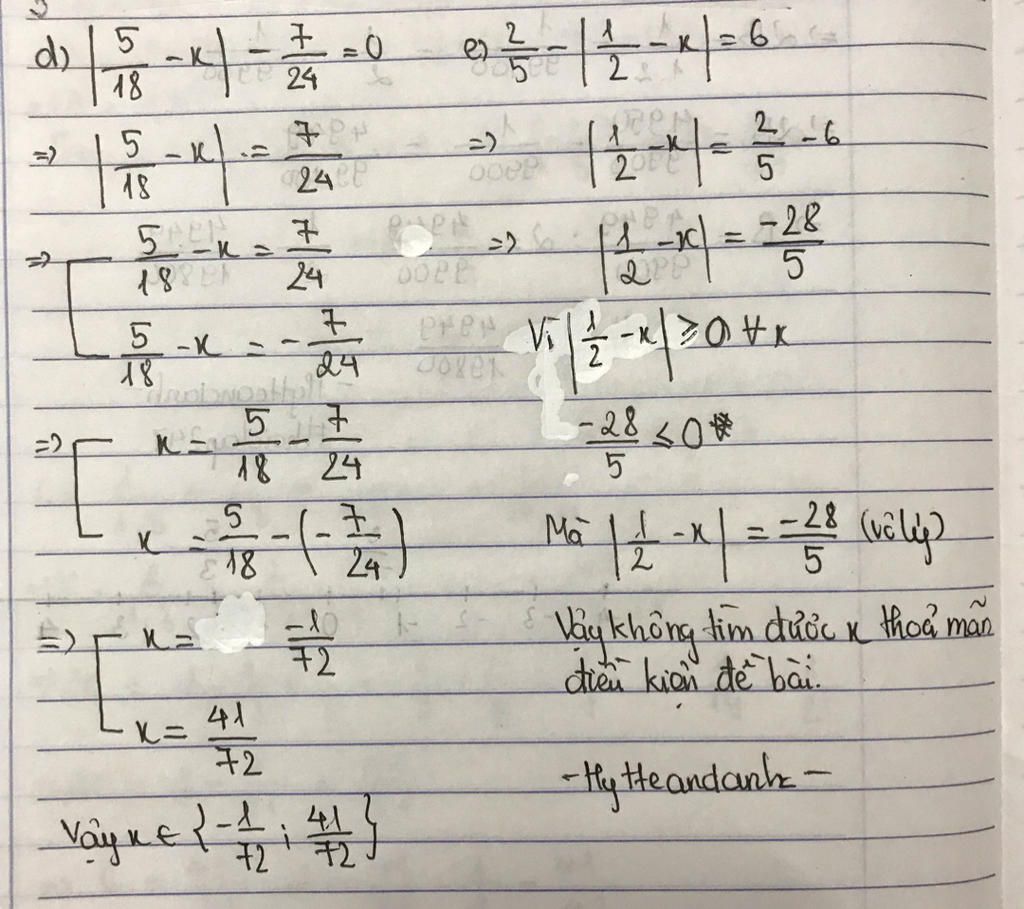 d) |5/18 - x| - 7/24 = 0
=> |5/18 - x| = 7/24
=> [ 5/18 - x = 7/24
5/18 - x = - 7/24
=> [ x = 5/18 - 7/24
x = 5/18 - (- 7/24)
=> [ x = -1/72
x = 41/72
Vậy x ∈ {-1/72 ; 41/72}
e) 2/5 - |1/2 - x| = 6
=> |1/2 - x| = 2/5 - 6
=> |1/2 - x| = -28/5
Vì |1/2 - x| ≥ 0 ∀ x
-28/5 ≤ 0
Mà |1/2 - x| = -28/5 (vô lý)
Vậy không tìm được x thoả mãn
điều kiện đề bài.
- HyHeandanh -